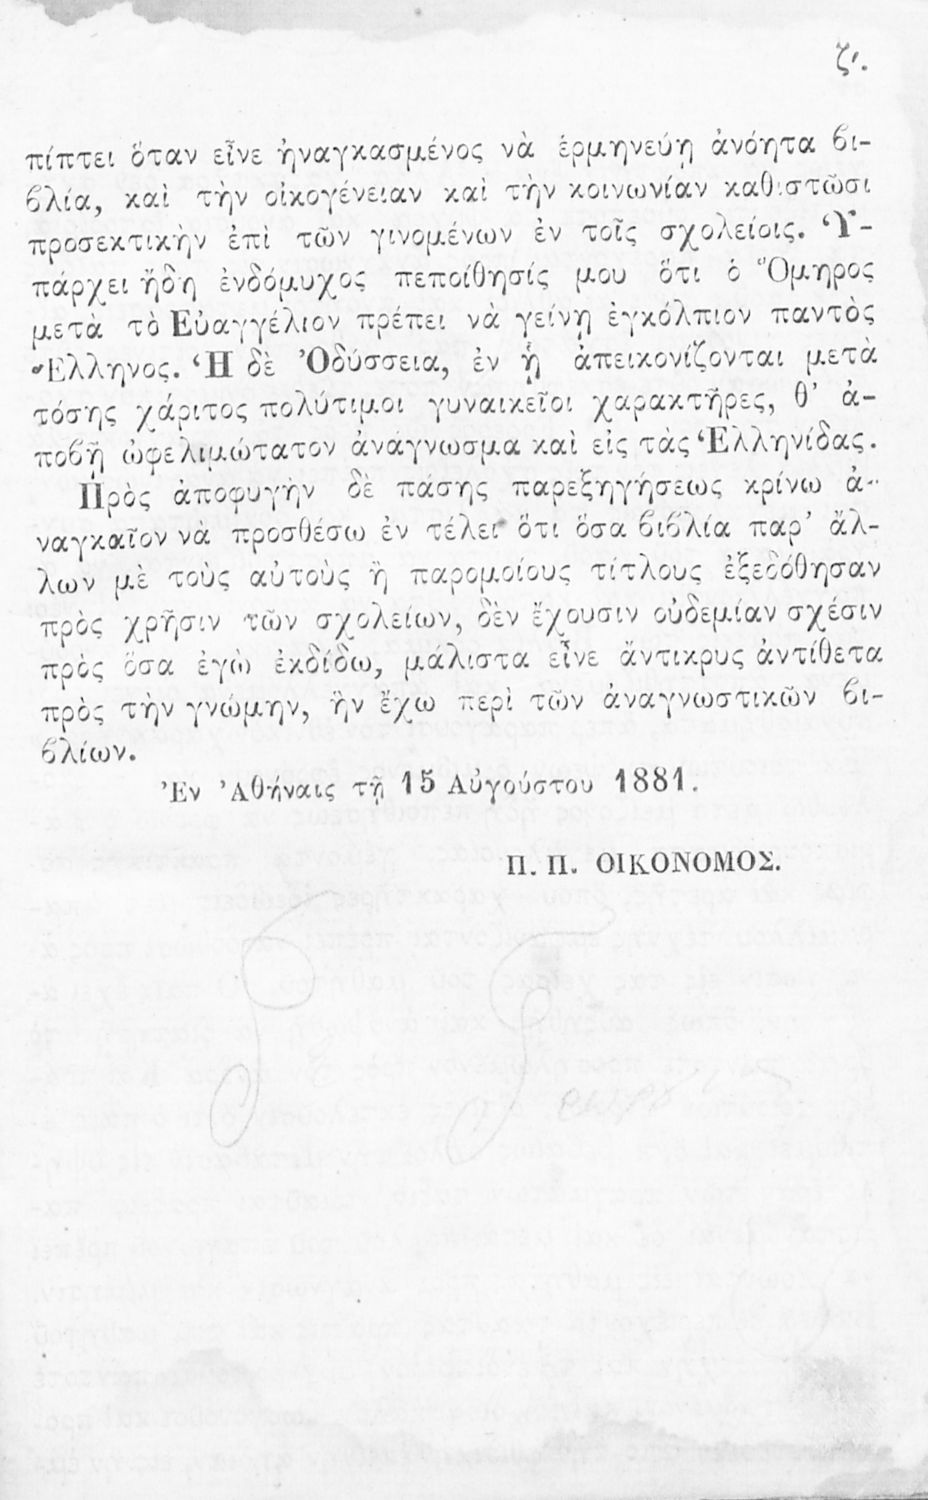 ζ′.
πίπτει ὅταν εἶνε ἠναγκασμένος νὰ ἑρμηνεύῃ ἀνόητα βι-
βλία, καὶ τὴν οἰκογένειαν καὶ τὴν κοινωνίαν καθιστῶσι
προσεκτικὴν ἐπὶ τῶν γινομένων ἐν τοῖς σχολείοις. Ὑ-
πάρχει ἤδη ἐνδόμυχος πεποίθησίς μου ὅτι ὁ Ὅμηρος
μετὰ τὸ Εὐαγγέλιον πρέπει νὰ γείνῃ ἐγκόλπιον παντὸς
Ἕλληνος. Ἡ δὲ Ὀδύσσεια, ἐν ᾗ ἀπεικονίζονται μετὰ
τόσης χάριτος πολύτιμοι γυναικεῖοι χαρακτῆρες, θ’ ἀ-
ποβῇ ὠφελιμώτατον ἀνάγνωσμα καὶ εἰς τὰς Ἑλληνίδας.
Πρὸς ἀποφυγὴν δὲ πάσης παρεξηγήσεως κρίνω ἀ-
ναγκαῖον νὰ προσθέσω ἐν τέλει ὅτι ὅσα βιβλία παρ’ ἄλ-
λων μὲ τοὺς αὐτοὺς ἢ παρομοίους τίτλους ἐξεδόθησαν
πρὸς χρῆσιν τῶν σχολείων, δὲν ἔχουσιν οὐδεμίαν σχέσιν
πρὸς ὅσα ἐγὼ ἐκδίδω, μάλιστα εἶνε ἄντικρυς ἀντίθετα
πρὸς τὴν γνώμην, ἣν ἔχω περὶ τῶν ἀναγνωστικῶν βι-
βλίων.
Ἐν Ἀθήναις τῇ 15 Αὐγούστου 1881.
Π. Π. ΟΙΚΟΝΟΜΟΣ.